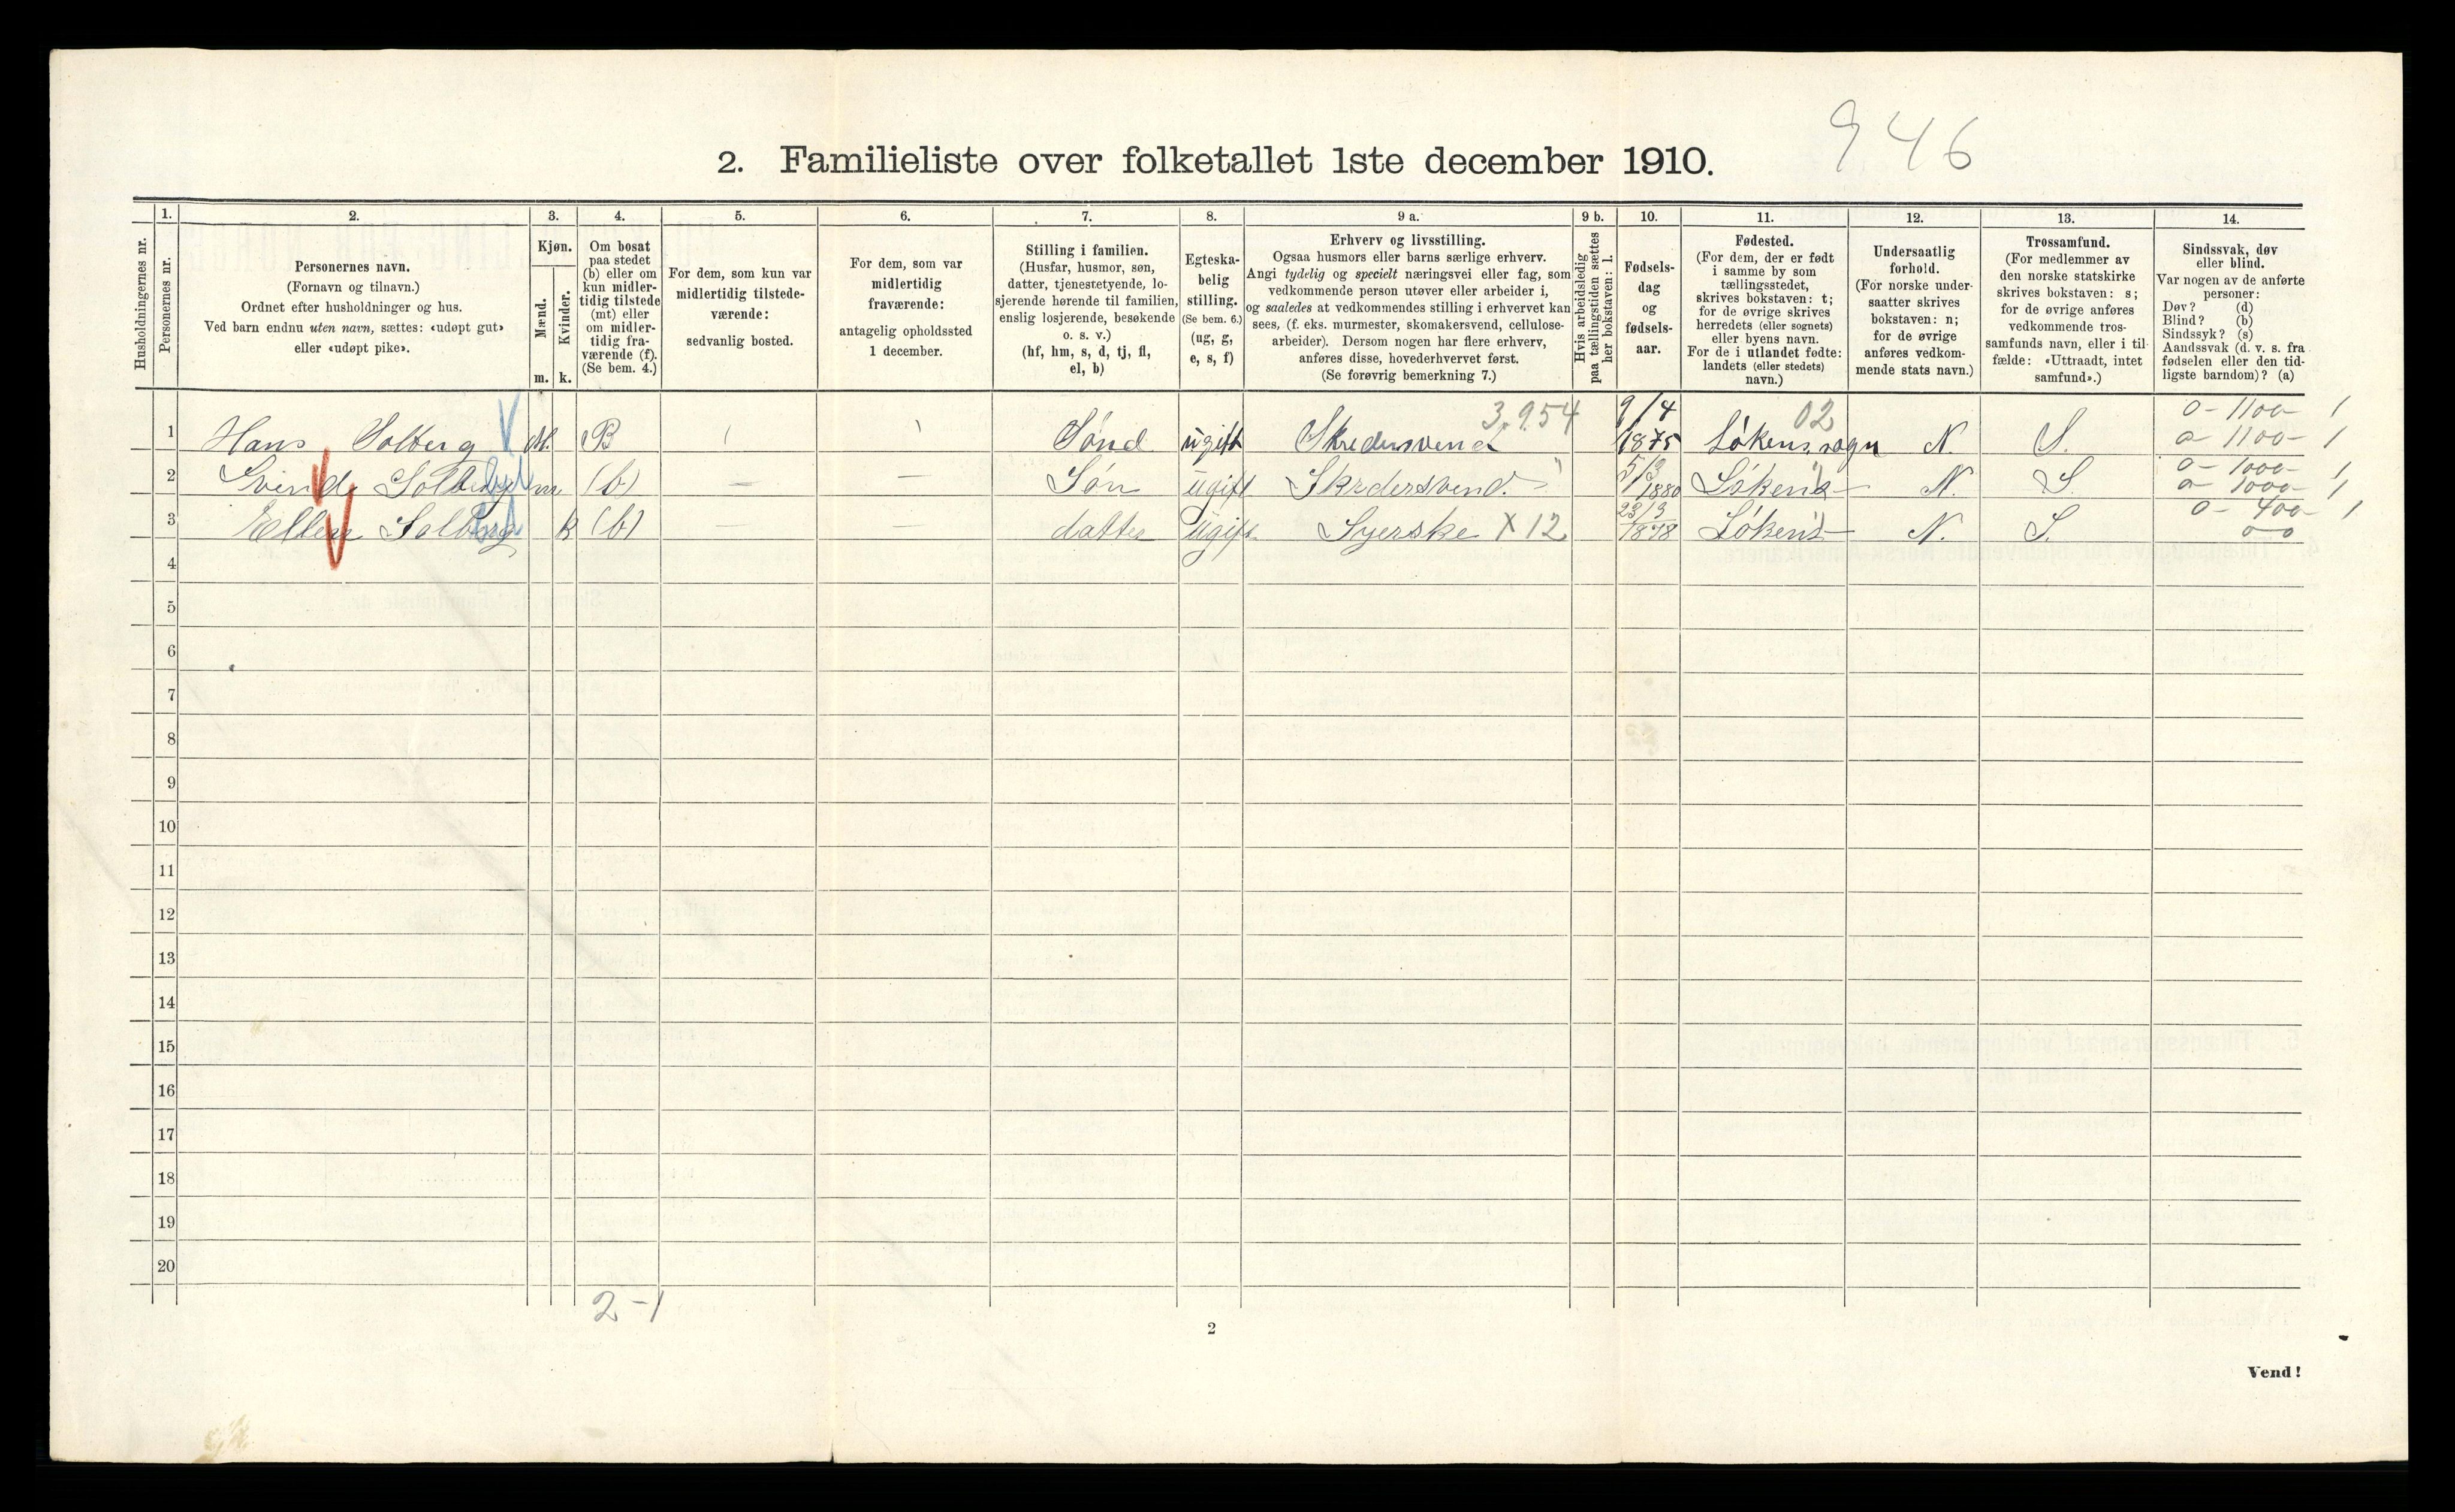 946
2. Familieliste over folketallet 1ste december 1910.
Husholdningernes nr.
1.
Personernes nr.
2.
Personernes navn.
(Fornavn og tilnavn.)
Ordnet efter husholdninger og hus.
Ved barn endnu uten navn, sættes: «udøpt gut»
eller «udøpt pike».
3.
Kjøn.
Mænd.
Kvinder.
m. k.
4.
Om bosat
paa stedet
(b) eller om
kun midler-
tidig tilstede
(mt) eller
om midler-
tidig fra-
værende (f).
(Se bem. 4.)
5.
For dem, som kun var
midlertidig tilstede-
værende:
sedvanlig bosted.
6.
For dem, som var
midlertidig
fraværende:
antagelig opholdssted
1 december.
7.
Stilling i familien.
(Husfar, husmor, søn,
datter, tjenestetyende, lo-
sjerende hørende til familien,
enslig losjerende, besøkende
o. s. v.)
(hf, hm, s, d, tj, fl,
el, b)
8.
Egteska-
belig
stilling.
(Se bem. 6.)
(ug, g,
e, s, f)
9 a.
Erhverv og livsstilling.
Ogsaa husmors eller barns særlige erhverv.
Angi tydelig og specielt næringsvei eller fag, som
vedkommende person utøver eller arbeider i,
og saaledes at vedkommendes stilling i erhvervet kan
sees, (f. eks. murmester, skomakersvend, cellulose-
arbeider). Dersom nogen har flere erhverv,
anføres disse, hovederhvervet først.
(Se forøvrig bemerkning 7.)
9 b.
Hvis arbeidsledig
paa tællingstiden sættes
her bokstaven: l.
10.
Fødsels-
dag
og
fødsels-
aar.
11.
Fødested.
(For dem, der er født
i samme by som
tællingsstedet,
skrives bokstaven: t;
for de øvrige skrives
herredets (eller sognets)
eller byens navn.
For de i utlandet fødte:
landets (eller stedets)
navn.)
12.
Undersaatlig
forhold.
(For norske under-
saatter skrives
bokstaven: n;
for de øvrige
anføres vedkom-
mende stats navn.)
13.
Trossamfund.
(For medlemmer av
den norske statskirke
skrives bokstaven: s;
for de øvrige anføres
vedkommende tros-
samfunds navn, eller i til-
fælde: «Uttraadt, intet
samfund».)
14.
Sindssvak, døv
eller blind.
Var nogen av de anførte
personer:
Døv? (d)
Blind? (b)
Sindssyk? (s)
Aandssvak (d. v. s. fra
fødselen eller den tid-
ligste barndom)? (a)
3.954 9/4 02 0 - 1100 - 1
1 Hans Solberg M. B Sønd ugift Skredersvend 1875 Løkens sogn N. S. 0 - 1100 - 1
5/3 0 - 1000 - 1
2 Solberg m (b) — — Søn ugift Skredersvend. " 1880 Løkens — N. S. 0 - 1000 - 1
23/3 0 - 400 - 1
3 Ellen Solberg k (b) — — datter ugift Syerske X 12 1878 Løkens — N. S. 0 - 0
4
5
6
7
8
9
10
11
12
13
14
15
16
17
18
19
20
2 - 1
2
Vend!